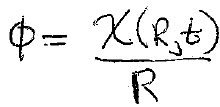 ϕ = χ(R,t)/R